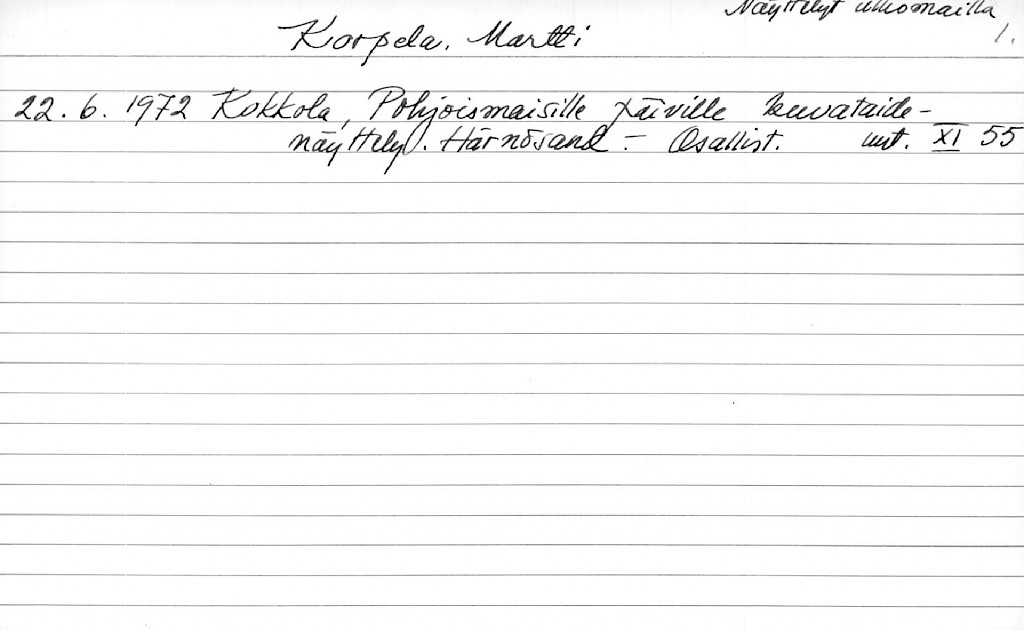 Näyttelyt ulkomailla
1.
Korpela, Martti
22. 6. 1972 Kokkola, Pohjoismaisille päiville kuvataide-
näyttely. Härnösand - Osallist. uut. XI 55